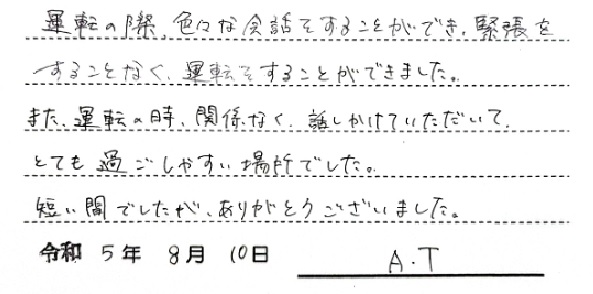 運転の際、色々な会話をすることができ、緊張を
することなく、運転をすることができました。
また、運転の時、関係なく、話しかけていただいて、
とても過ごしやすい場所でした。
短い間でしたが、ありがとうございました。
令和 5年 8月 10日 A.T